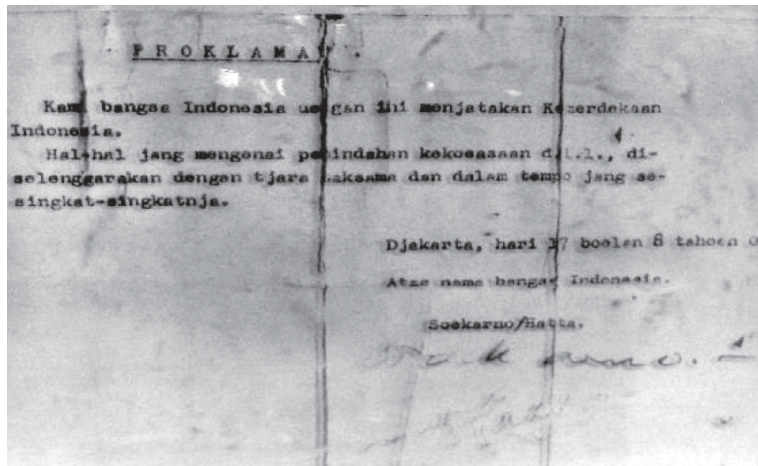 P R O K L A M A
Kami bangsa Indonesia dengan ini menjatakan Kemerdekaan
Indonesia.
Hal-hal jang mengenai pemindahan kekoeasaan d.l.l., di-
selenggarakan dengan tjara saksama dan dalam tempo jang se-
singkat-singkatnja.
Djakarta, hari 17 boelan 8 tahoen 0
Atas nama bangsa Indonesia.
Soekarno/Hatta.